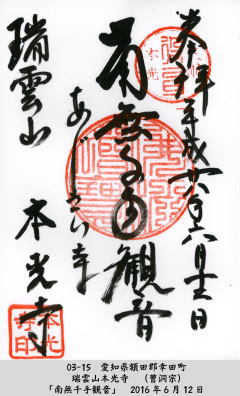 奉拝
平成廿八年六月十二日
南無千手観音
あじさい寺
瑞雲山
本光寺
本光寺印
03-15 愛知県額田郡幸田町
瑞雲山本光寺 (曹洞宗)
「南無千手観音」 2016年6月12日